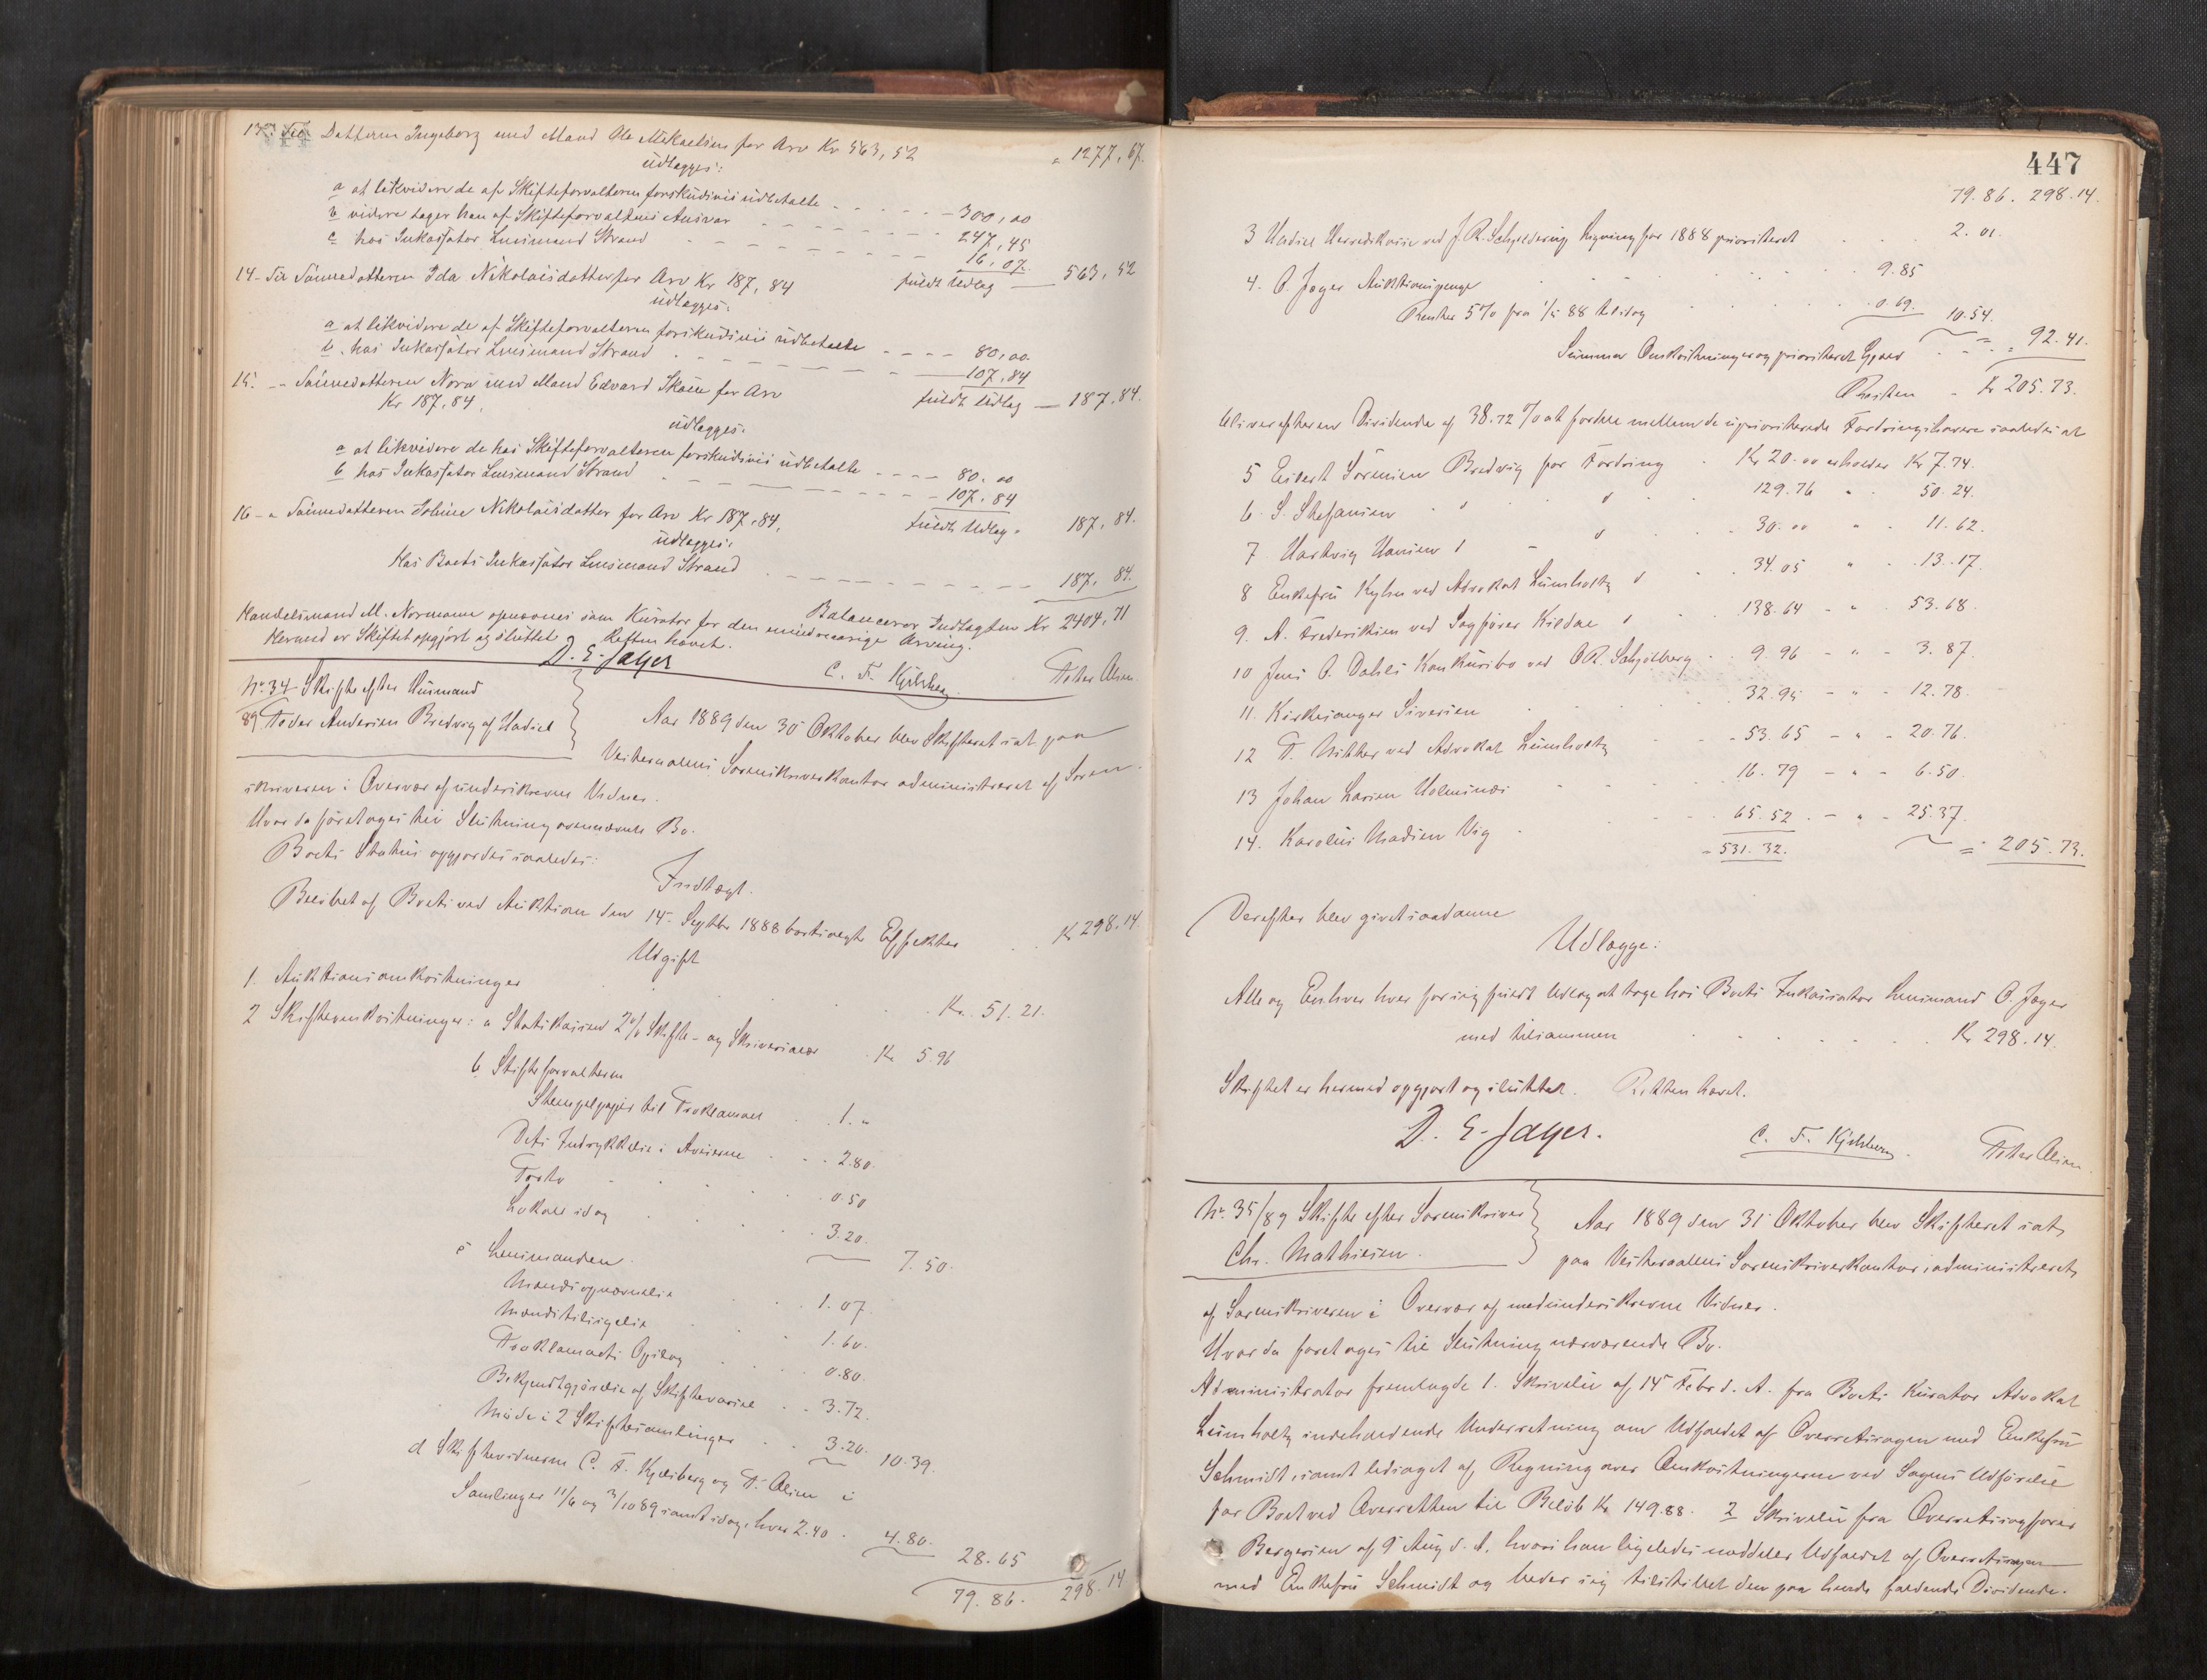 13. Til Datteren Ingeborg med Mand Ole Mikaelsen for Arv Kr 563,52 " 1277,67.
udlægges:
a at likvidere de af Skifteforvalteren forskudsvis udbetalte 300,00
b videre tager han af Skifteforvalterens Ansvar 247,45
c hos Inkassator Lensmand Strand 16,07. fuldt Udlæg — 563,52
14 - Til Sønnedatteren Ida Nikolaisdatter for Arv Kr 187,84
udlægges:
a at likvidere de af Skifteforvalteren forskudsvis udbetalte 80,00
b. hos Inkassator Lensmand Strand 107,84 fuldt Udlæg — 187,84.
15. - Sønnedatteren Nora med Mand Edvard Skoien for Arv
Kr 187,84,
udlægges:
a at likvidere de hos Skifteforvalteren forskudsvis udbetalte 80.00
b hos Inkassator Lensmand Strand 107.84 fuldt Udlæg " 187,84.
16 - " Sønnedatteren Joline Nikolaisdatter for Arv Kr 187,84,
udlægges:
Hos Boets Inkassator Lensmand Strand 187,84.
Balancerer Indtægten Kr 2404,71
Handelsmand M. Normann opnævnes som Kurator for den mindreaarige Arving.
Hermed er Skiftet opgjort og sluttet. Retten hævet.
D. E. Jager C. F. Kjelsberg Peter Olsen.
No. 34/89 Skifte efter Husmand
Peder Andersen Bredvig af Hadsel
Aar 1889 den 30 Oktober blev Skifteret sat paa
Vesteraalens Sorenskriverkontor administreret af Soren-
skriveren i Overvær af underskrevne Vidner.
Hvor da foretoges til Slutning ovennævnte Bo.
Boets Status opgjordes saaledes:
Indtægt.
Beløbet af Boets ved Auktion den 14. Septbr 1888 bortsolgte Effekter Kr 298.14
Udgift
1. Auktionsomkostninger Kr. 51.21.
2 Skifteomkostninger: a Statskassen 2% Skifte- og Skriversalær Kr 5.96
b Skifteforvalteren
Stempelpapir til Proklamaet 1."
Dets Indrykkelse i Aviserne 2.80.
Porto 0.50
Lokale idag 3.20. 7.50.
c Lensmanden
Mændsopnævnelse 1.07
Mændstilsigelse 1.60.
Proklamaets Opslag 0.80.
Bekjendtgjørelse af Skiftevarsel 3.72.
Møde i 2 Skiftesamlinger 3.20. 10.39.
d Skiftevidnerne C. F. Kjelsberg og P. Olsen i
Samlinger 11/6 og 3/10 89 samt idag, hver 2.40 4.80. 28.65
79.86. 298.14
447
79.86. 298.14.
3 Hadsel Herredskasse ved J. R. Schjelderup Ligning for 1888 prioriteret 2.01.
4. O. Jæger Auktionspenge 9.85
Renter 5% fra 88 til idag 0.69. 10.54. = 92.41.
Summa Omkostninger og prioriteret Gjæld
Resten Kr 205.73.
bliver efter en Dividende af 38.72 % at fordele mellem de uprioriterede Fordringshavere saaledes at
5 Edvert Sørensen Bredvig for Fordring Kr 20.00 erholder Kr 7.74.
6. S. Stefansen " " 129.76 " 50.24.
7 Hartvig Hansen " " 30.00 " 11.62.
8 Enkefru Kyhn ved Advokat Lumholtz " 34.05 " 13.17.
9. A. Frederiksen ved Sagfører Kildal " 138.64 " 53.68.
10 Jens O. Dahls Konkursbo ved OR. Schjølberg 9.96 - " - 3.87.
11. Kirkesanger Sivertsen 32.95 - " - 12.78.
12 P. Rikter ved Advokat Lumholtz 53.65 - " - 20.76.
13 Johan Larsen Holmsnæs 16.79 - " - 6.50.
14. Karolius Madsen Vig 65.52 - " - 25.37.
531.32. = 205.73.
Derefter blev givet saadanne
Udlægge:
Alle og Enhver hver for sig fuldt Udlæg at tage hos Boets Inkassator Lensmand O. Jæger
med tilsammen Kr 298.14.
Skiftet er hermed opgjort og sluttet. Retten hævet.
D. E. Jager. C. F. Kjelsberg. Peter Olsen.
No. 35/89 Skifte efter Sorenskriver
Chr. Mathiesen.
Aar 1889 den 31 Oktober blev Skifteret sat
paa Vesteraalens Sorenskriverkontor, administreret
af Sorenskriveren i Overvær af medunderskrevne Vidner.
Hvor da foretoges til Slutning nærværende Bo.
Administrator fremlagde 1. Skrivelse af 14 Febr d. A. fra Boets Kurator Advokat
Lumholtz indeholdende Underretning om Udfaldet af Overretssagen med Enkefru
Schmidt, samt ledsaget af Regning over Omkostningerne ved Sagens Udførelse
for Boet ved Overretten til Beløb Kr 149.88. 2 Skrivelse fra Overretssagfører
Bergersen af 9 Aug d. A. hvori han ligeledes meddeler Udfaldet af Overretssagen
med Enkefru Schmidt og beder sig tilstillet den paa hende faldende Dividende.